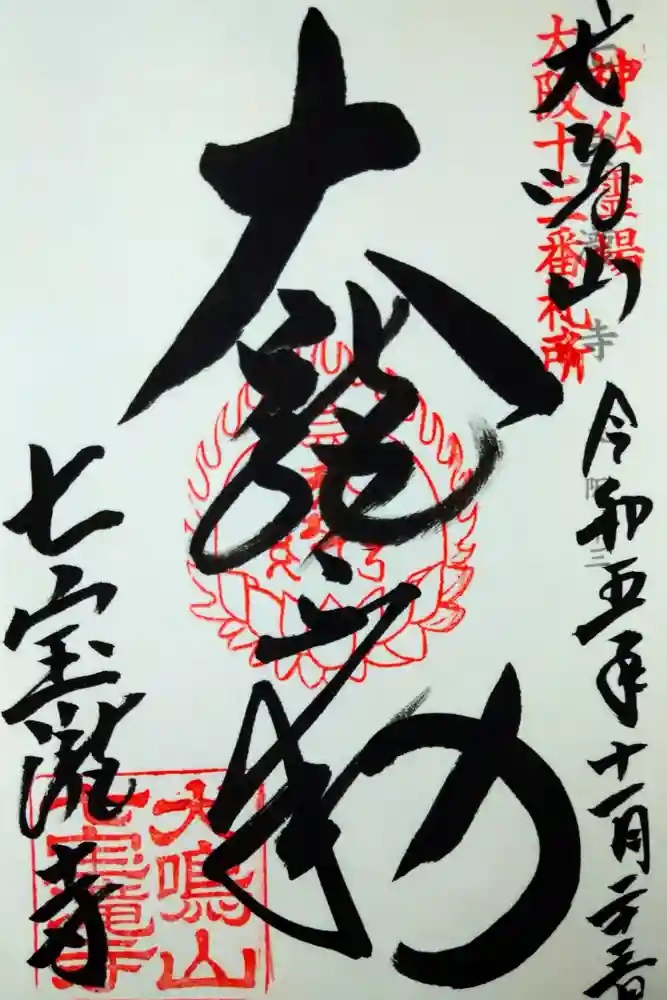 神仏霊場
大阪十三番札所
犬鳴山
令和五年十一月二十三日
大龍不動
七宝瀧寺
犬鳴山
七宝瀧寺